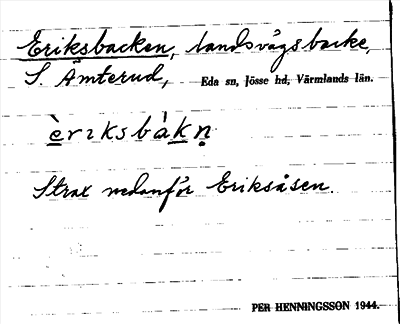 Eriksbacken, landsvägsbacke,
S. Åmterud, Eda sn, Jösse hd, Värmlands län.
èrıksbàkṇ
Strax nedanför Eriksåsen.
PER HENNINGSSON 1944.